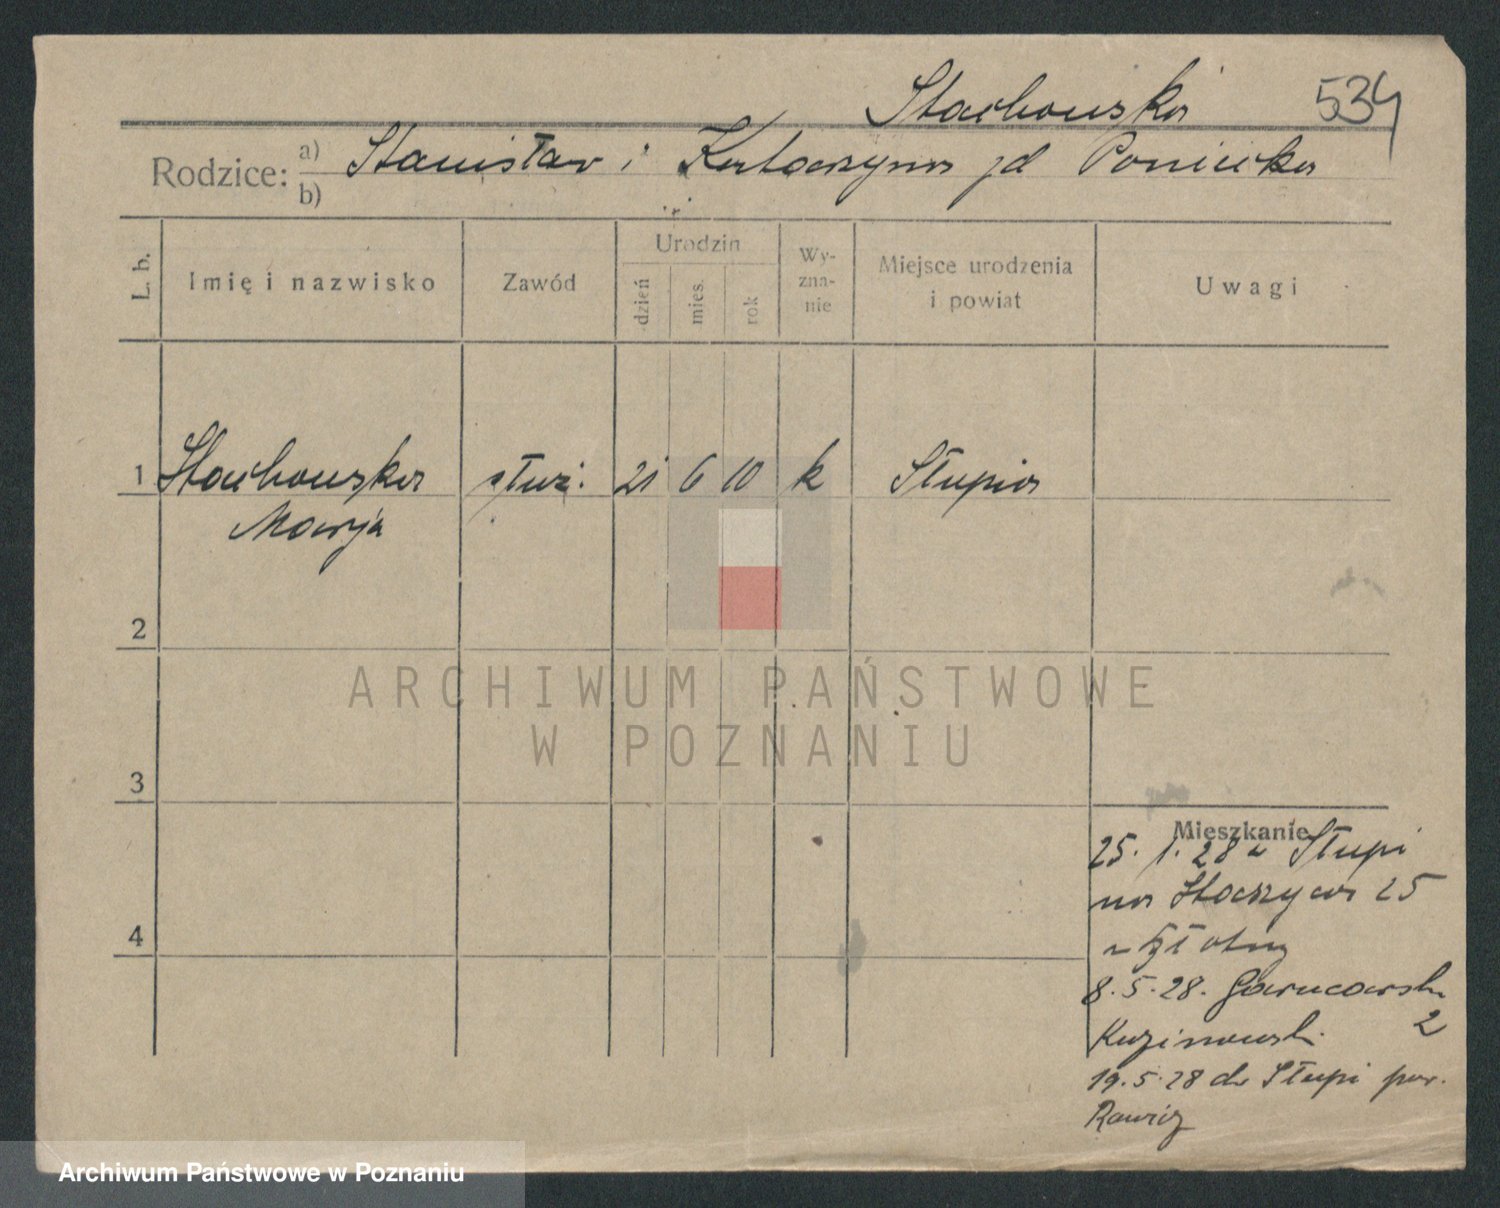 Stachowska 534
Rodzice: a) Stanisław i Katarzyna zd Ponicka
b)
L. b. Imię i nazwisko Zawód Urodzin dzień mies. rok Wy-zna-nie Miejsce urodzenia i powiat Uwagi
1 Stachowska służ. 21 6 10 k Słupia
Marja
2
ARCHIWUM PAŃSTWOWE
W POZNANIU
3
Mieszkanie
25. 1. 28 z Słupi
na 25
4
8.5.28.
2
19.5.28 do Słupi pow.
Rawicz
Archiwum Państwowe w Poznaniu